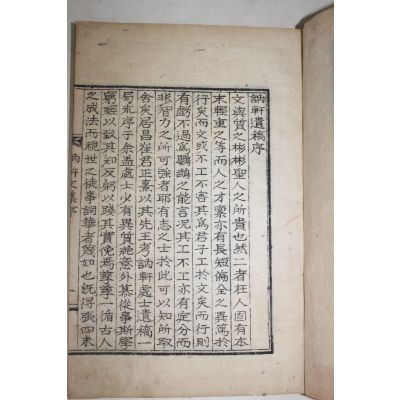 訥軒遺稿序
文與質之彬彬聖人之所貴也然二者在人固有本
末輕重之等而人之才稟亦有長短偏全之異篤於
行矣而文或不工不害其爲君子工於文矣而行則
有虧不過爲鸚鵡之能言況其工不工亦有定分而
非智力之所可強者耶有志之士於此可以知所取
舍矣居昌崔君正憙以其先王考訥軒處士遺稿一
局求序于余盖處士少有異質絶意外慕從事斯學
窮經以致其知反躬以踐其實俛焉孳孳一循古人
之成法而視世之徒事詞華者蔑如也旣得張四未
訥軒文集序